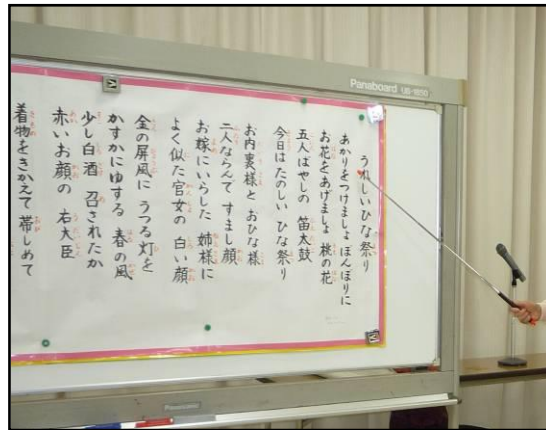 Panaboard UB-8950
うれしいひな祭り
あかりをつけましょ ぼんぼりに
お花をあげましょ 桃の花
五人ばやしの 笛太鼓
今日はたのしい ひな祭り
お内裏様と おひな様
二人ならんで すまし顔
お嫁にいらした 姉様に
よく似た官女の 白い顔
金の屏風に うつる灯を
かすかにゆする 春の風
少し白酒 召されたか
赤いお顔の 右大臣
着物をきかえて 帯しめて